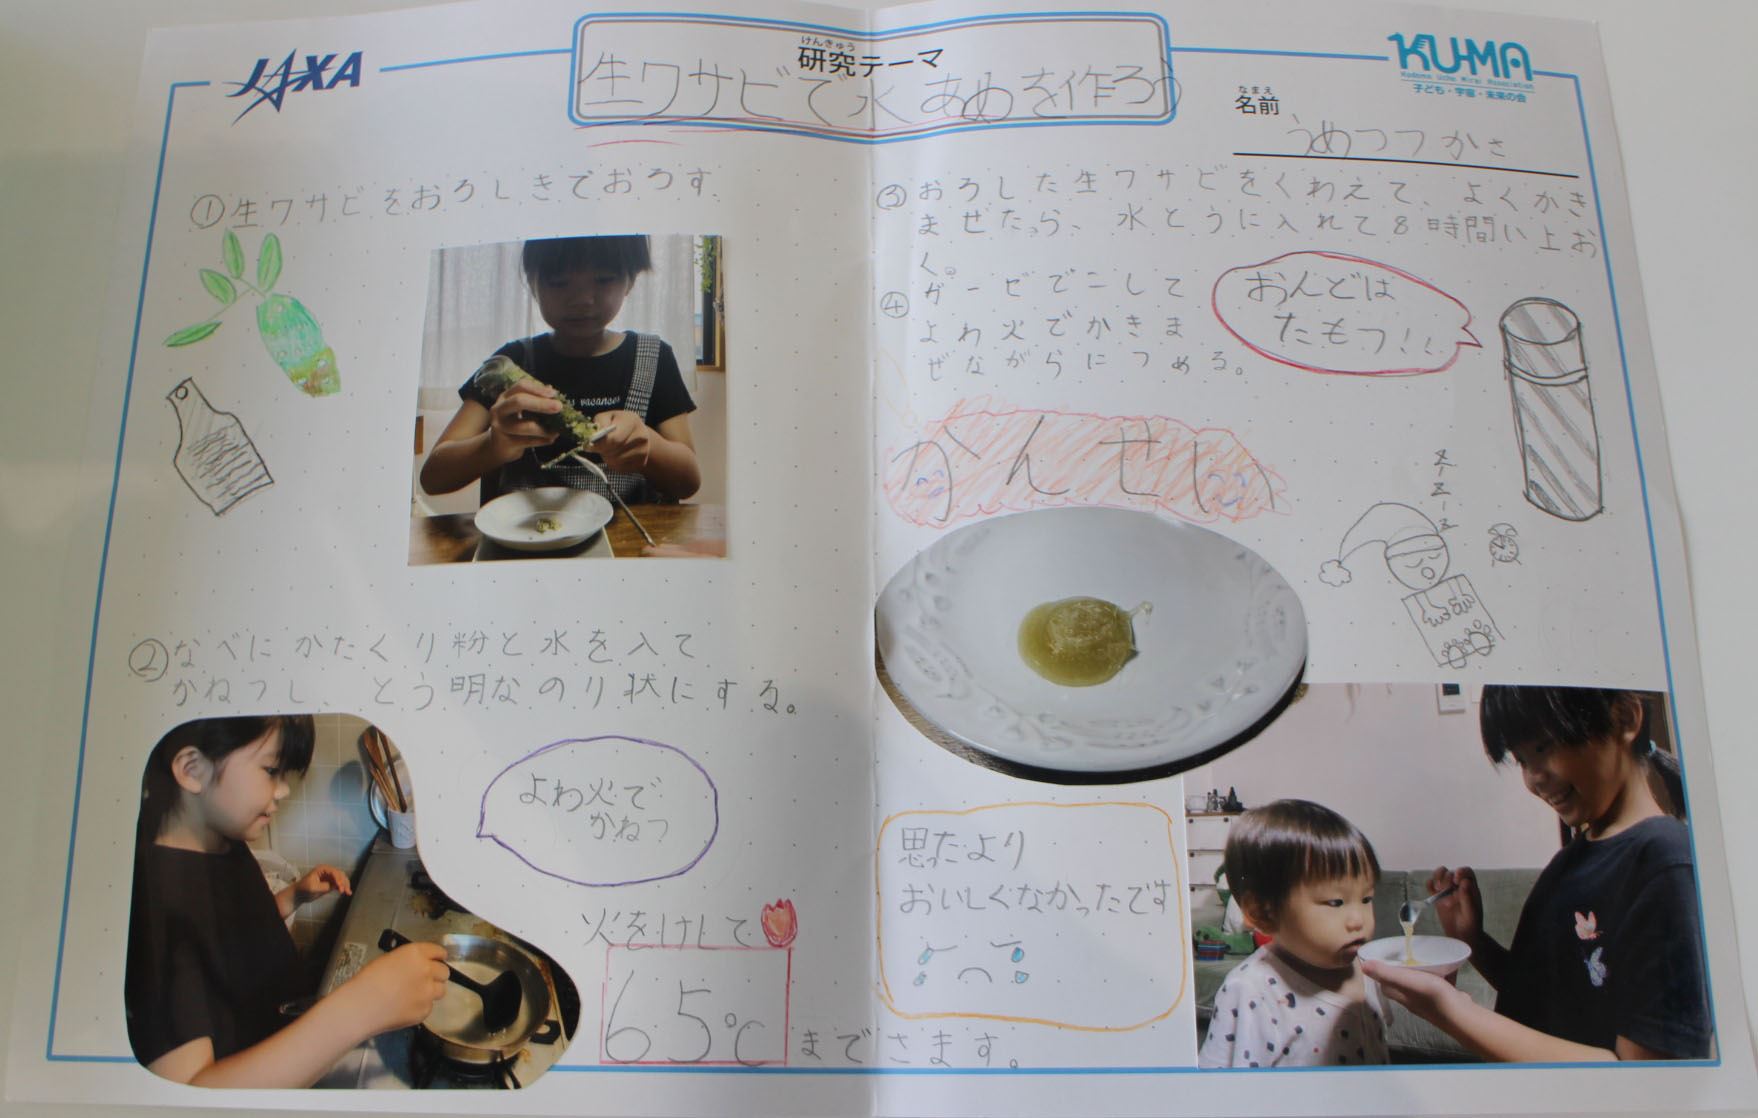 JAXA
けんきゅう
研究テーマ
生ワサビで水あめを作ろう
KU-MA
Kodomo Uchu Mirai Association
子ども・宇宙・未来の会
なまえ
名前
うめつつかさ
①生ワサビをおろしきでおろす
②なべにかたくり粉と水を入て
かねつし、とう明なのり状にする。
よわ火で
かねつ
火をけして
65℃
までさます。
③おろした生ワサビをくわえて、よくかき
ませたら、水とうに入れて8時間い上お
く。
④ガーゼでこして
よわ火でかきま
ぜながらにつめる。
おんどは
たもつ!!
かんせい
ズーズーズ
思ったより
おいしくなかったです